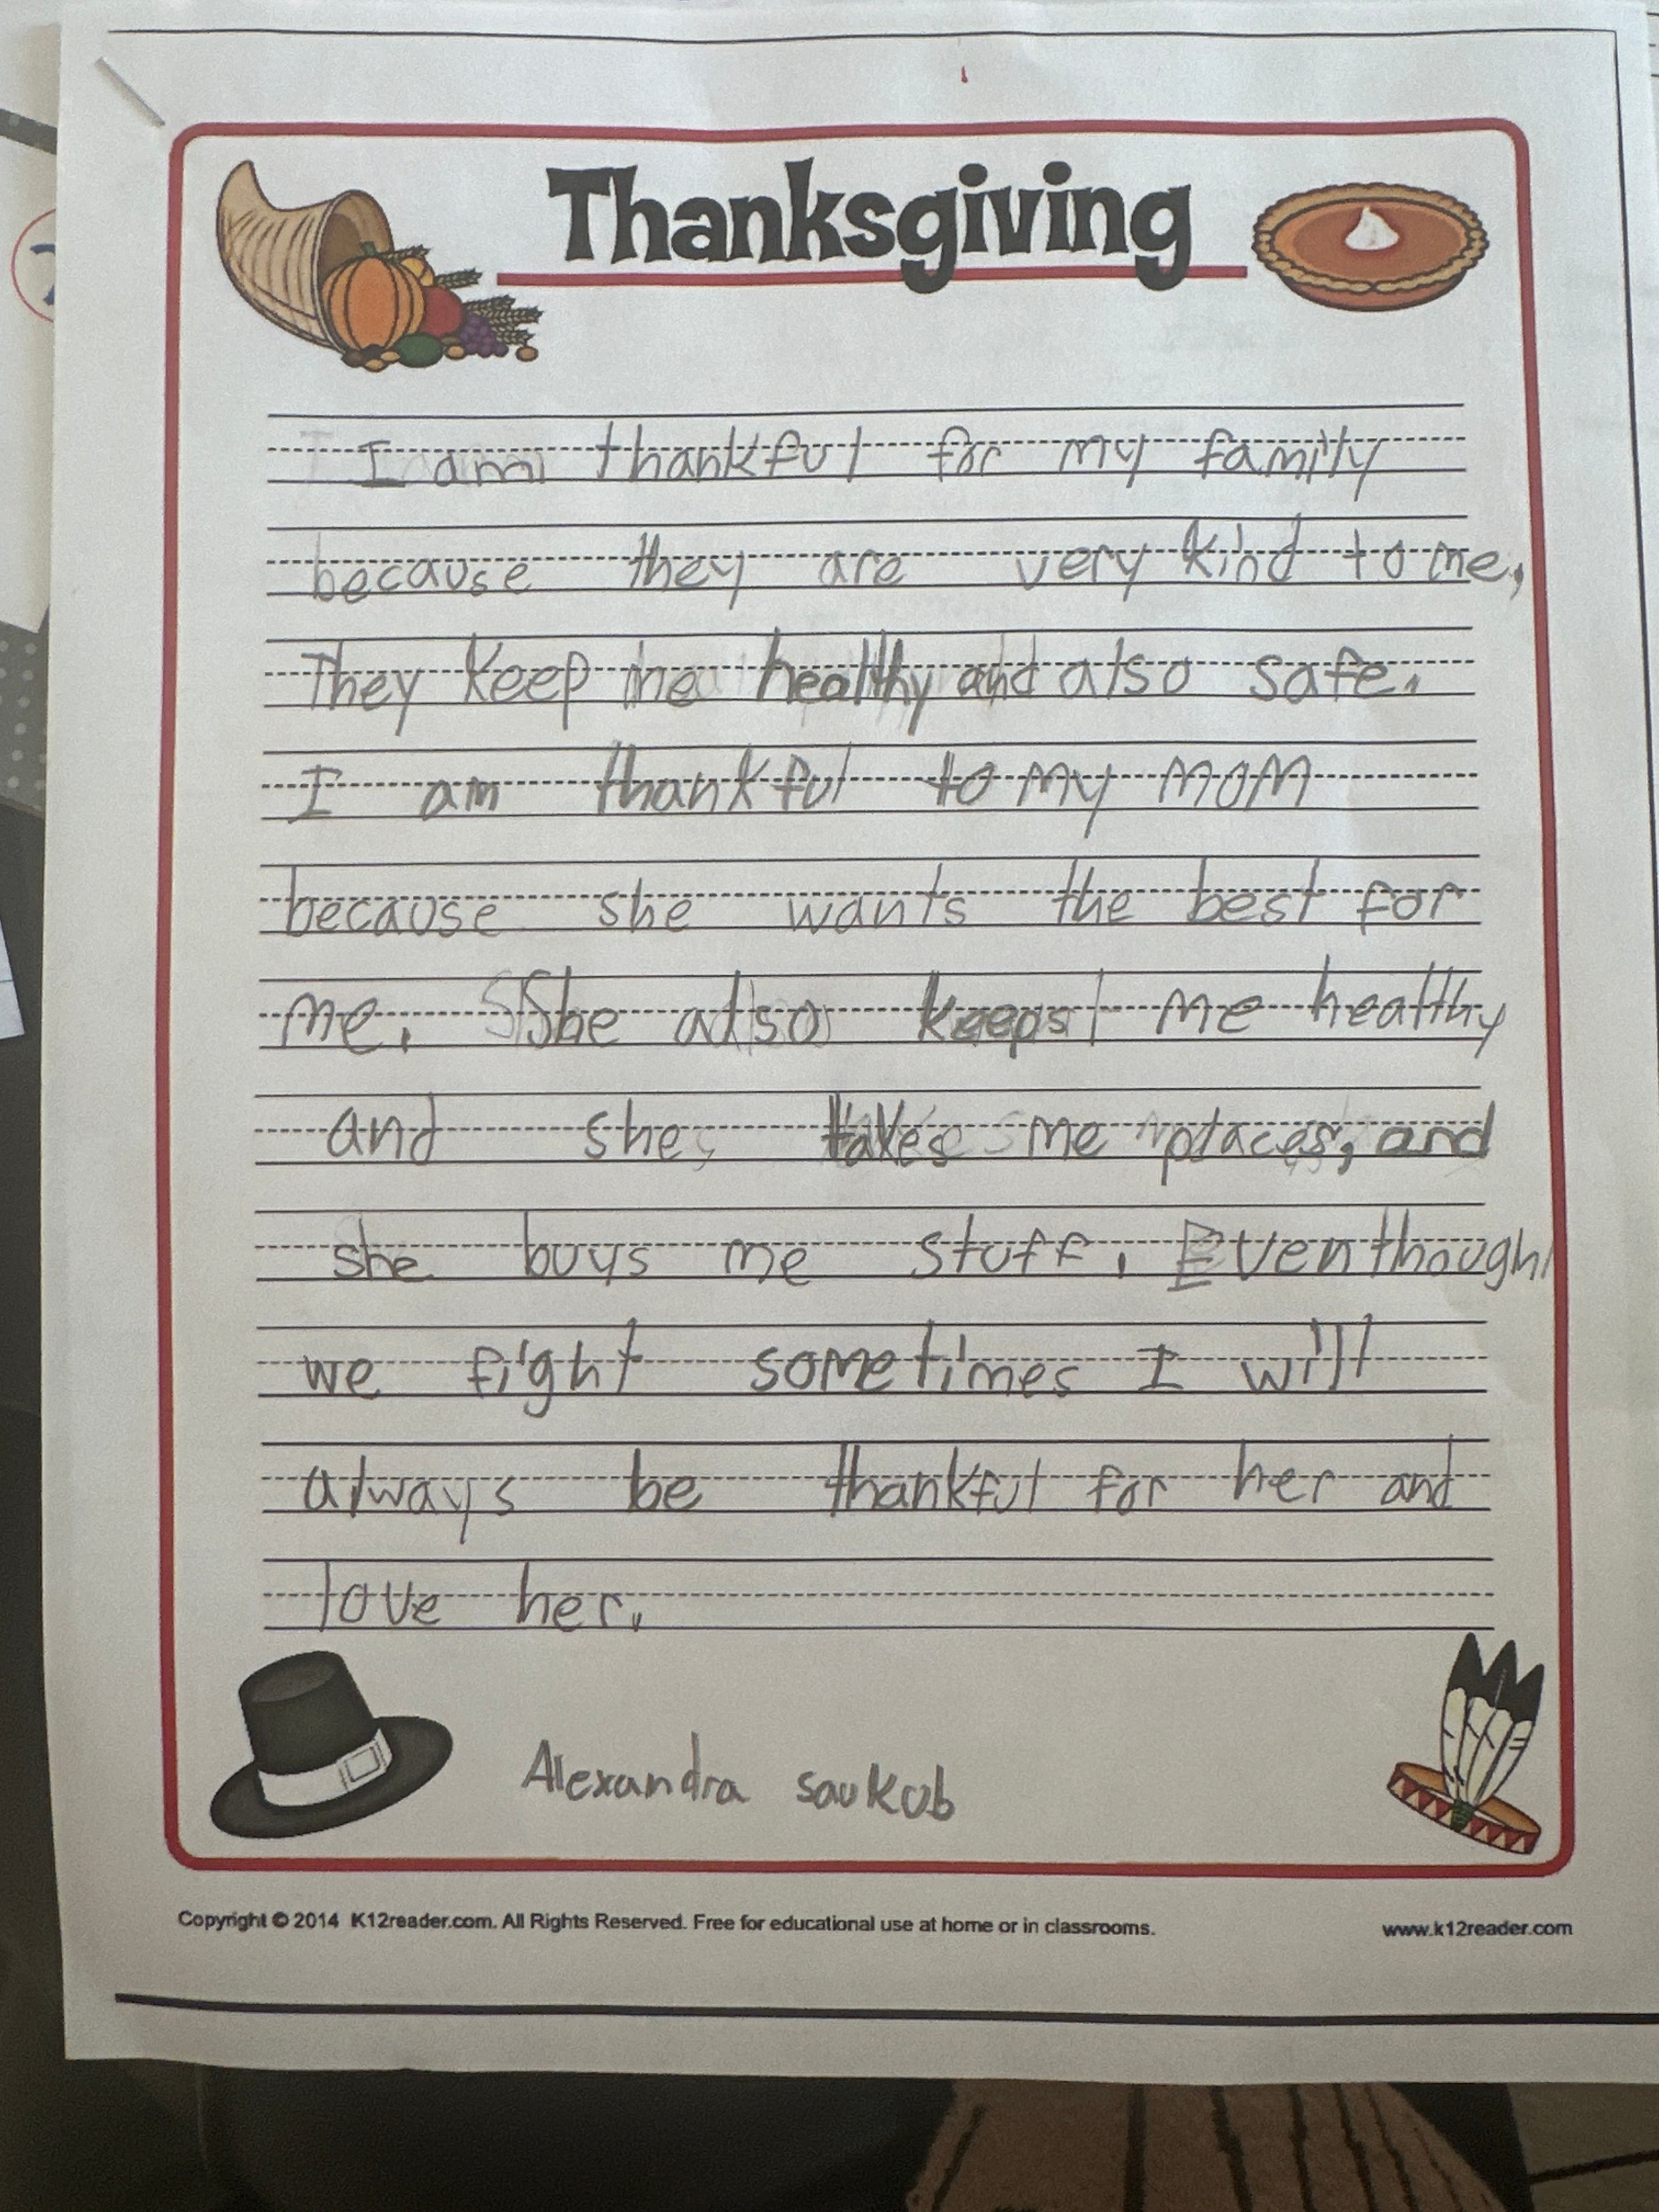 Thanksgiving
I am thankful for my family
because they are very kind to me,
They keep me healthy and also safe.
I am thankful to my mom
because she wants the best for
me. She also keeps me healthy
and she takes me places, and
she buys me stuff. Even though
we fight sometimes I will
always be thankful for her and
love her.
Alexandra saukub
Copyright © 2014 K12reader.com. All Rights Reserved. Free for educational use at home or in classrooms. www.k12reader.com